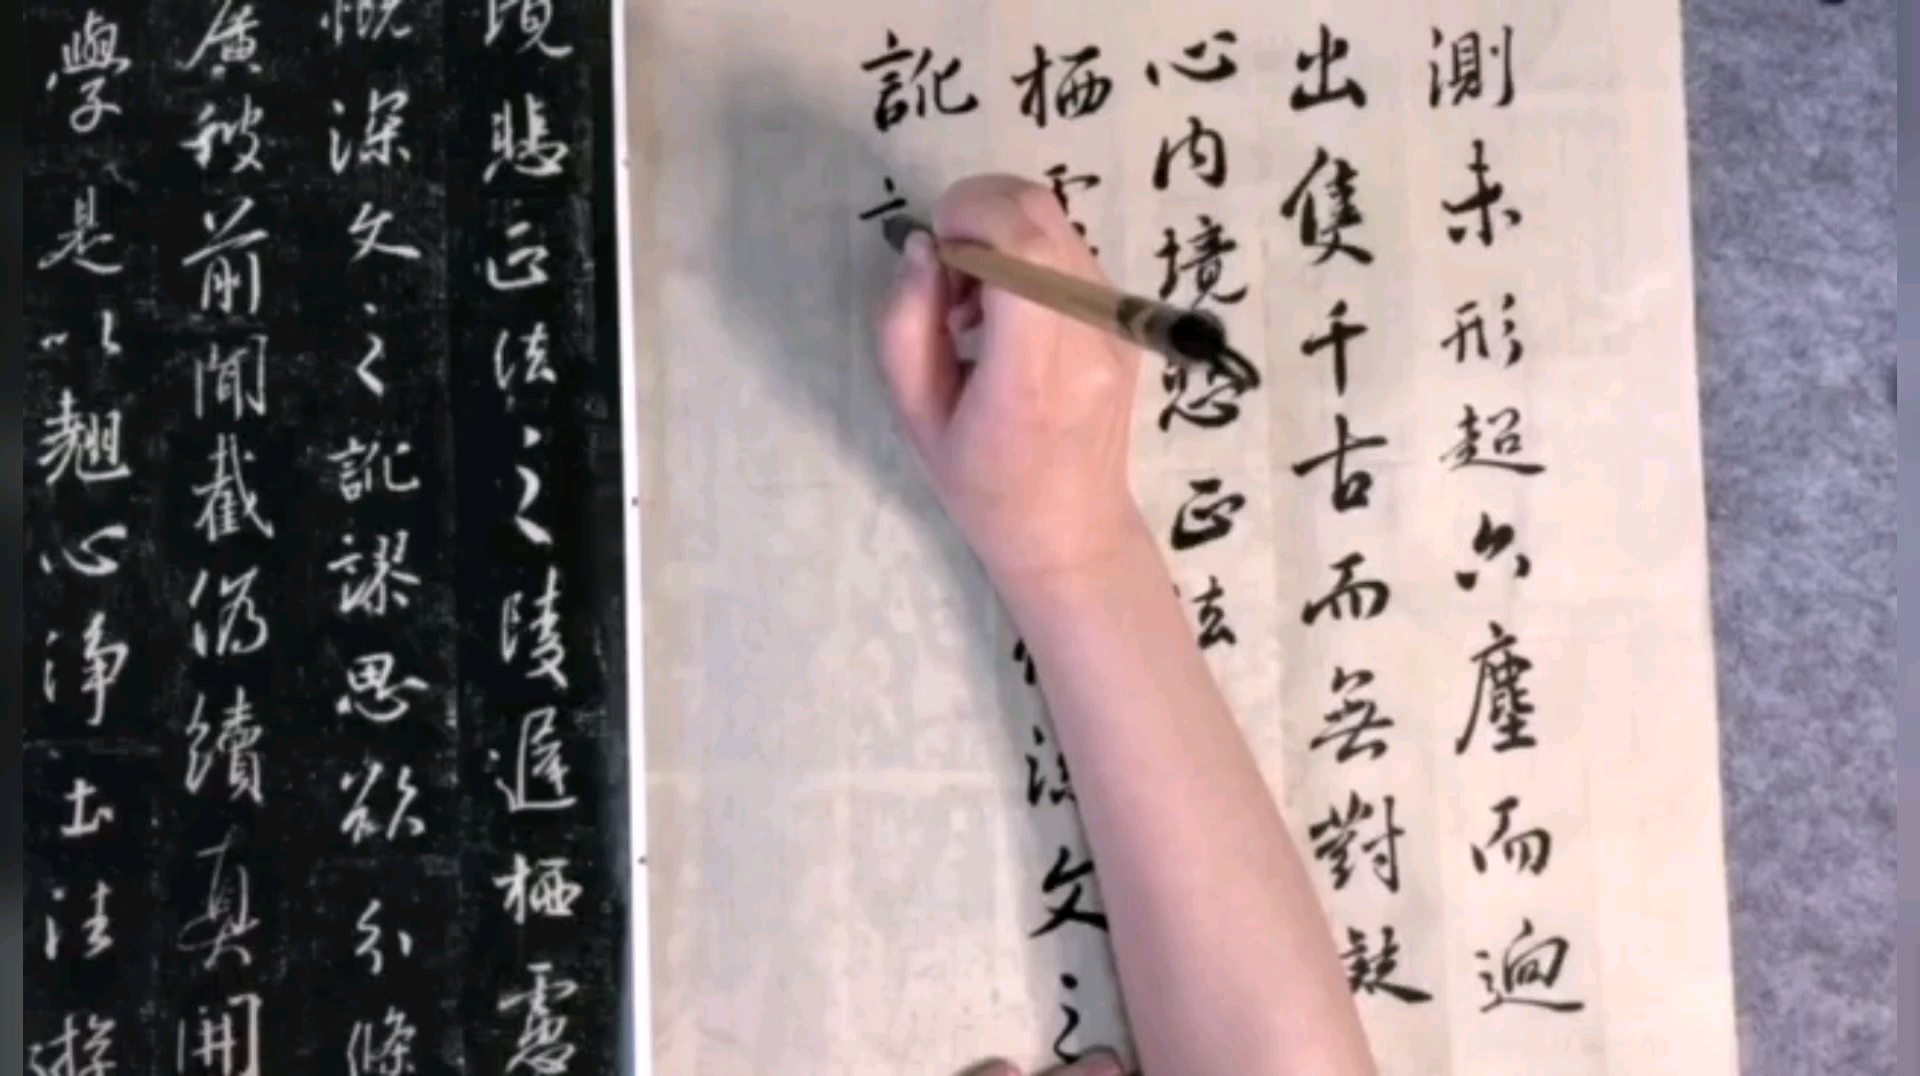 測未形超六塵而迥
出隻千古而無對
心內境悲正法
栖
深文之
訛
境悲正法之陵遲栖慮
慨深文之訛謬思欲分條
廣彼前聞截偽續真開
學是以翹心淨土法遊